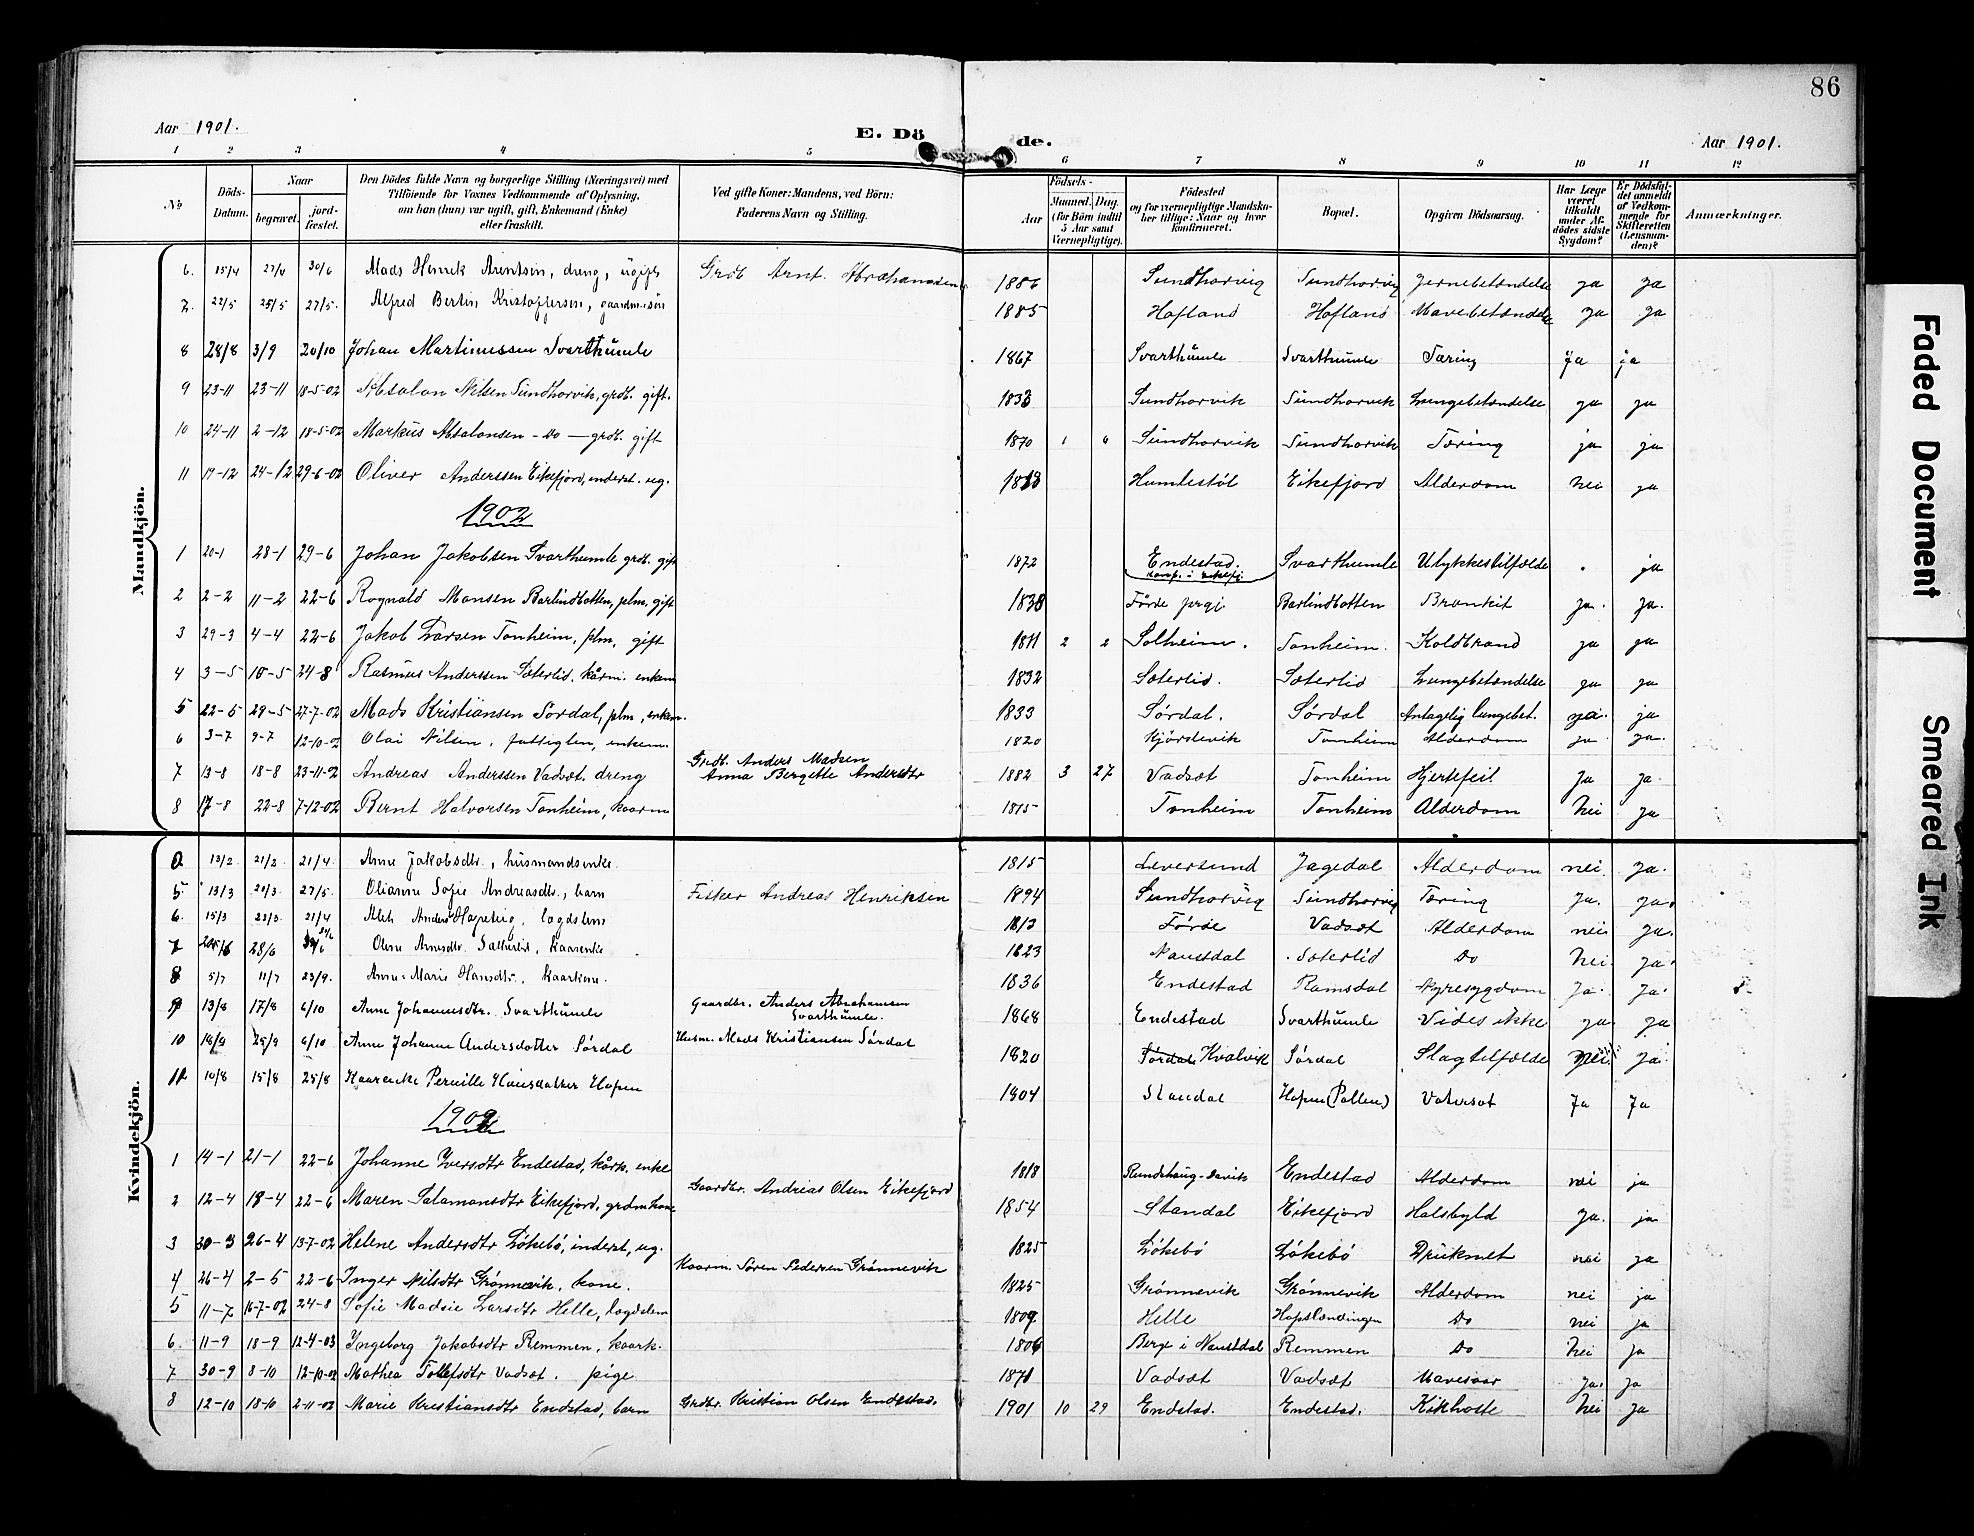 86
Aar 1901. E. Döde. Aar 1901.
1 2 3 4 5 6 7 8 9 10 11 12
No.
Döds-Datum.
Naar
begravet.
jord-fæstet.
Den Dödes fulde Navn og borgerlige Stilling (Næringsvei) med
Tilföiende for Voxnes Vedkommende af Oplysning,
om han (hun) var ugift, gift, Enkemand (Enke)
eller fraskilt.
Ved gifte Koner: Mandens, ved Börn:
Faderens Navn og Stilling.
Födsels-
Aar
Maaned. Dag.
(for Börn indtil
5 Aar samt
Værnepligtige).
Födested
og for værnepligtige Mandska-
ber tillige: Naar og hvor
konfirmeret.
Bopæl.
Opgiven Dödsaarsag.
Har Læge
været
tilkaldt
under Af-
dödes sidste
Sygdom?
Er Dödsfal-
det anmeldt
af Vedkom-
mende for
Skifteretten
(Lensman-
den)?
Anmærkninger.
Mandkjön.
6. 15/4 27/4 30/6 Mads Henrik Arentsen, dreng, ugift Grdb. Arnt Abrahamsen 1886 Sundhorvig Sundhorvig Jernebetændelse ja ja
7. 22/5 25/5 27/5. Alfred Bertin Kristoffersen, gaardm. søn 1885 Hofland Hofland Mavebetændelse ja ja
8 28/8 3/9 20/10 Johan Martinussen Svarthumle 1867 Svarthumle Svarthumle Tæring ja ja
9 23-11 23-11 18-5-02 Absalon Nilsen Sundhorvik, grdb. gift. 1833 Sundhorvik Sundhorvik Lungebetændelse ja ja
10 24-11 2-12 18-5-02 Markus Absalonsen - Do - grdb. gift 1870 1 6 Sundhorvik Sundhorvik Tæring ja ja
11 17-12 24-12 29-6-02 Oliver Anderssen Eikefjord, inderst. ug. 1813 Humlestøl Eikefjord Alderdom nei ja
1902
1 20-1 28-1 29-6 Johan Jakobsen Svarthumle grdb. gift 1872 Endestad. konf. i Eikefj. Svarthumle Ulykkestilfælde . ja
2 2-2 11-2 22-6 Rognald Monsen Barlindbotten, plm, gift 1838 Førde prgj Barlindbotten Bronkit ja. ja.
3 29-3 4-4 22-6 Jakob Larsen Tonheim, plm, gift 1811 2 2 Solheim. Tonheim. Koldbrand ja ja
4 3-5 10-5 24-8 Rasmus Anderssen Sæterlid. kårm. enkem 1832 Sæterlid. Sæterlid Lungebetændelse ja ja
5 22-5 29-5 27-7-02 Mads Kristiansen Sørdal, plm, enkem. 1833 Sørdal. Sørdal Antagelig lungebet. nei. ja
6 3-7 9-7 12-10-02 Olai Nilsen, fattiglem, enkem. 1820 Kjørdevik Tonheim Alderdom ja ja.
7 13-8 18-8 23-11-02 Andreas Anderssen Vadsæt. dreng Grdb. Anders Madsen
Anna Bergette Andersdtr 1882 3 27 Vadsæt Tonheim Hjertefeil Ja ja.
8 17-8 22-8 7-12-02 Bernt Halvorsen Tonheim, kaarm 1815 Tonheim Tonheim Alderdom nei ja
Kvindekjön.
13/2 21/2. 21/4. Anne Jakobsdtr., husmandsenke. 1815 Leversund Jagedal Alderdom nei ja.
5. 13/3 20/3. 27/5. Olianne Sofie Andreasdtr., barn Fisker Andreas Henriksen 1894 Sundhorvig Sundhorvig Tæring ja. ja.
6. 15/3 22/3. 21/4 logdslem 1813 Førde Vadsæt Alderdom nei ja.
7 28/6 Kaarenke 1823 Naustdal Sæterlid Do nei. ja.
8 5/7 11/7 23/9. Anne-Marie Hansdtr., Kaarkone. 1836 Endestad Ramsdal Nyresygdom ja. ja.
9 13/8 17/8 6/10 Anne Johannesdtr. Svarthumle Gaardbr. Anders Abrahamsen
Svarthumle. 1868 Endestad Svarthumle Vides ikke ja. ja
10 18/9 25/9 6/10 Anne Johanne Andersdotter Sørdal Husm. Mads Kristiansen Sørdal 1820 Sørdal Kvalvik Sørdal Slagtilfælde nei ja
11. 10/8 15/8 25/8 Kaarenke Pernille Hansdatter Hopen 1804 Standal Hopen (Pollen) Vatersot Ja Ja
1902
1 14-1 21-1 22-6 Johanne Iversdtr Endestad, kårk. enke 1818 Rundehaug-Davik Endestad Alderdom nei ja
2 12-4 18-4 22-6 Maren Salamonsdtr Eikefjord, grdm. kone Gaardbr. Andrias Olsen Eikefjord 1854 Standal Eikefjord Halsbyld ja. ja
3 30-3 26-4 13-7-02 Helene Andersdtr Løkebø, inderst, ug. 1825 Løkebø Løkebø Druknet nei ja
4 26-4 2-5 22-6 Inger Nilsdtr Grønnevik, kone. Kaarm. Søren Pedersen Grønnevik 1825 Grønnevik Grønnevik Alderdom nei ja
5 11-7 16-7-02 24-8 Sofie Madsie Larsdtr Helle, logdslem 1809 Helle Hopslandingen Do nei ja
6. 11-9 18-9 12-4-03 Ingeborg Jakobsdtr Remmen, kaark. 1806 Berge i Naustdal Remmen Do nei ja
7 30-9 8-10 12-10-02 Mathea Tollefsdtr Vadsæt. pige 1871 Vadsæt Vadsæt Mavesaar ja. ja
8 12-10 18-10 2-11-02 Marie Kristiansdtr Endstad, barn Grdbr. Kristian Olsen Endestad. 1901 10 29 Endstad. Endestad. Kikhoste nei ja
Faded Document
Smeared Ink